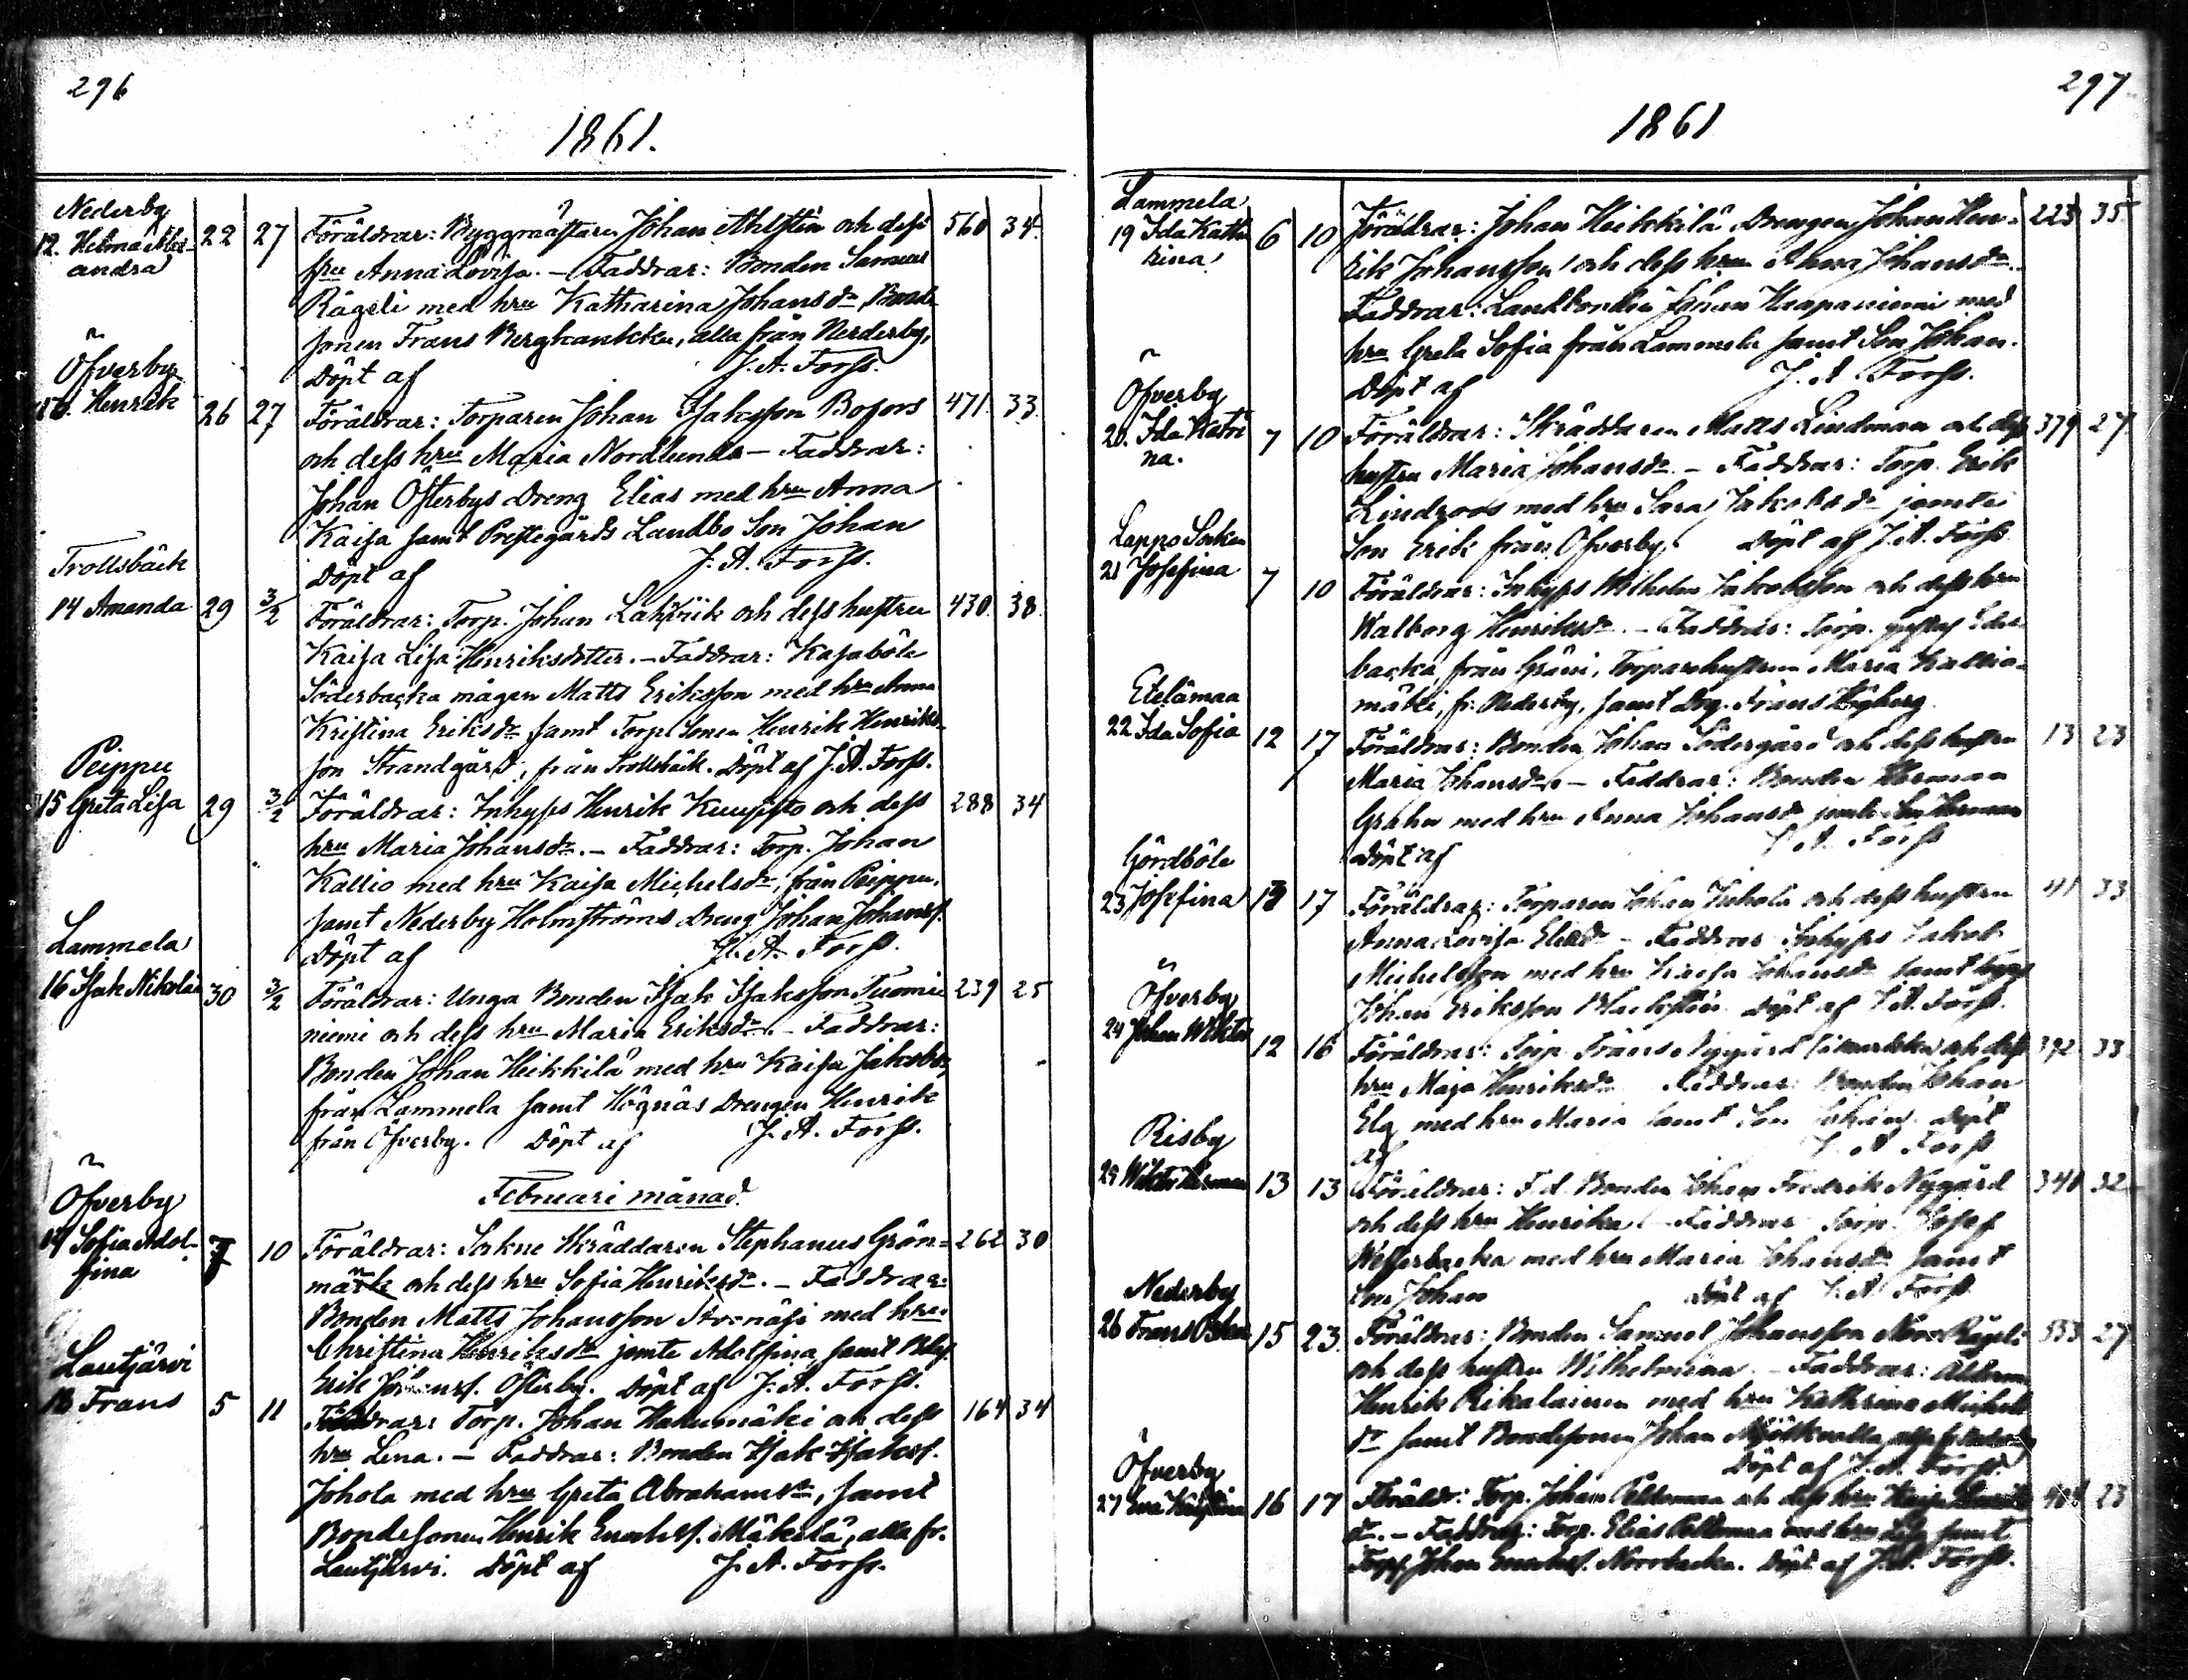 296
1861.
Nederby
12. Helma Alex-
andra
22 27 Föräldrar: Byggmästaren Johan Ahlsten och dess 560 34
fru Anna Lovisa. – Faddrar: Bonden Samuel
Rägeli med hru Katharina Johansdr, Bonde-
sonen Frans Bergkankku, alla från Nederby,
Döpt af J. A. Forss.
Öfverby
Henrik 26 27 Föräldrar: Torparen Johan Isaksson Bofors 471. 33.
och dess hru Maria Nordlunds – Faddrar:
Johan Österbys Dreng Elias med hru Anna
Kaisa samt Prestegårds Landbo Son Johan
Döpt af J. A. Forss.
Trollsbäck
14 Amanda 29 3/2 Föräldrar: Torp. Johan och dess hustru 430. 38.
Kaisa Lisa Henriksdotter. – Faddrar: Kasaböle
Söderbacka mågen Matts Eriksson med hru Anna
Kristina Eriksdr samt Torp. Sonen Henrik Henriks-
son Strandgård, från Trollsbäck. Döpt af J. A. Forss.
Peippu
15 Greta Lisa 29 3/2 Föräldrar: Inhyses Henrik och dess 288 34
hru Maria Johansdr. – Faddrar: Torp. Johan
Kallio med hru Kaisa Michelsdr, från Peippu,
samt Nederby Holmströms Dreng Johan Johanss.
Döpt af J. A. Forss.
Lammela
16 Isak Nikolai 30 3/2 Föräldrar: Unga Bonden Isak Isaksson Tuomi- 239 25
niemi och dess hru Maria Eriksdr. – Faddrar:
Bonden Johan Heikkilä med hru Kaisa Jakobsdr,
från Lammela samt Högnäs Drengen Henrik
från Öfverby. Döpt af J. A. Forss.
Februari månad.
Öfverby
17 Sofia Adol-
fina
7 10 Föräldrar: Sockne Skräddaren Stephanus Grön- 262 30
mark och dess hru Sofia Henriksdr. – Faddrar:
Bonden Matts Johansson med hru
Christina Henriksdr jemte Adolfina samt
Erik Johanss. Österby. Döpt af J. A. Forss.
Lautjärvi
18 Frans 5 11 Föräldrar: Torp. Johan Hakumäki och dess 164 34
hru Lena. – Faddrar: Bonden Isak Isakss.
Johola med hru Greta Abrahamsdr, samt
Bondesonen Henrik Enochss. Mäkelä, alla fr.
Lautjärvi. Döpt af J. A. Forss.
297
1861
Lammela
19 Ida Kath-
rina
6 10 Föräldrar: Johan Heikkilä Drengen Johan Hen- 223 35
rik Johansson och dess hru Anna Johansdr.
Faddrar: Landbonden Johan Haapaniemi med
hru Greta Sofia från Lammela samt Son Johan.
Döpt af J. A. Forss.
Öfverby
20. Ida Katri-
na.
7 10 Föräldrar: Skräddaren Matts Lindman och dess 379 27
hustru Maria Johansdr. – Faddrar: Torp. Erik
Lindroos med hru Sara Jakobsdr jemte
Son Erik från Öfverby. Döpt af J. A. Forss
Lappo Socken
21 Josefina 7 10 Föräldrar: Inhyses Wilhelm Jakobsson och dess hru
Walborg Henriksdr. – Faddrar: Torp. Gustaf
backa, från Torparehustrun Maria Kallio-
mäki, fr. Nederby, samt Drg. Frans Högberg.
Etelämaa
22 Ida Sofia 12 17 Föräldrar: Bonden Johan Södergård och dess hustru 13 23
Maria Johansdr. – Faddrar: Bonden Herman
med hru Anna Johansdr jemte Son Herman
Döpt af J. A. Forss
Gördböle
23 Josefina 13 17 Föräldrar: Torparen Johan och dess hustru 41 33
Anna Lovisa – Faddrar Inhyses Jakob
Michelsson med hru Kaisa Johansdr samt
Johan Eriksson Döpt af J. A. Forss.
Öfverby
24 Johan Wiktor 12 16 Föräldrar: Torp. Frans Nygård och dess 392 33
hru Maja Henriksdr Faddrar: Bonden Johan
Elg med hru Maria samt Son Johan. Döpt
af J. A. Forss
Risby
25 Wiktor Herman 13 13 Föräldrar: F.d. Bonden Johan Fredrik Nygård 340 32
och dess hru Henrika – Faddrar Torp. Josef
Westerbacka med hru Maria Johansdr samt
Son Johan Döpt af J. A. Forss
Nederby
26 Frans Oskar 15 23. Föräldrar: Bonden Samuel Johansson Rägeli 553 27
och dess hustru Wilhelmina. – Faddrar:
Henrik Rikalainen med hru Kathrina Michels-
dr samt Bondesonen Johan
Döpt af J. A. Forss.
Öfverby
27 Eva Kristina 16 17 Föräldr: Torp. Johan Peltomaa och dess hru Kaisa 23
dr. – Faddrar: Torp. Elias Peltomaa med hru Lisa samt
Johan Norrbacka. Döpt af J. A. Forss.